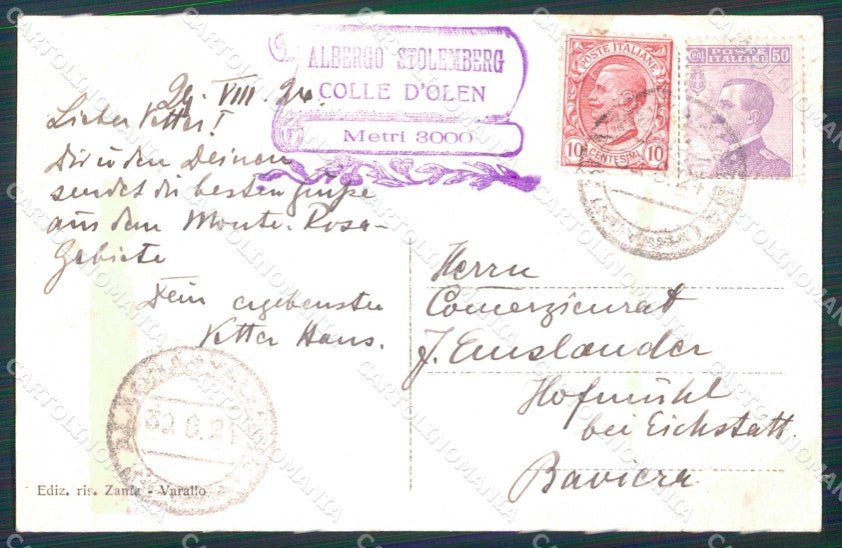 ALBERGO STOLEMBERG
COLLE D'OLEN
Metri 3000
POSTE ITALIANE
10 CENTESIMI 10
POSTE ITALIANE
50
29. VIII. 24.
Lieber Vetter!
Dir u den Deinen
sendet die besten Grüße
aus dem Monte-Rosa-
Gebiete
Dein ergebenster
Vetter Hans.
Herrn
Comerzienrat
J. Emslander
Hofmühl
bei Eichstatt.
Baviera
Ediz. ris. Zanfa - Varallo
CARTOLINOMANIA